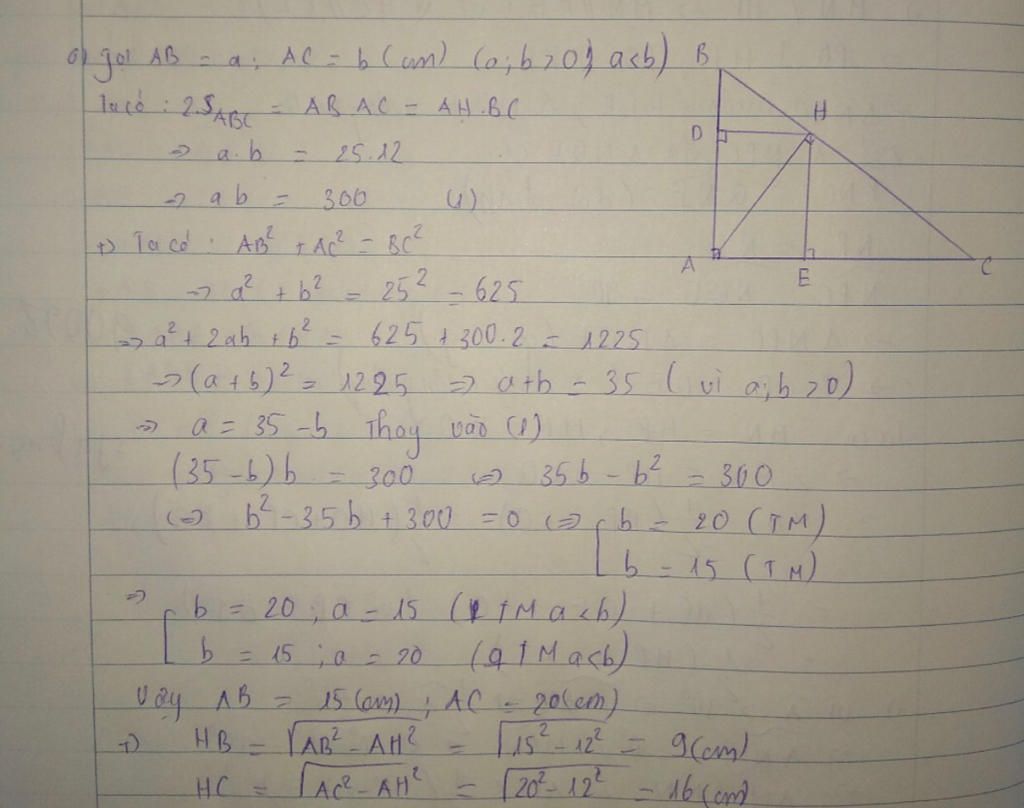 6) gọi AB = a; AC = b (cm) (a;b>0; a<b)
Ta có: 2.S_ABC = AB.AC = AH.BC
⇒ a.b = 25.12
⇒ ab = 300 (1)
+) Ta có: AB² + AC² = BC²
⇒ a² + b² = 25² = 625
⇒ a² + 2ab + b² = 625 + 300.2 = 1225
⇒ (a+b)² = 1225 ⇒ a+b = 35 (vì a;b>0)
⇒ a = 35 - b Thay vào (1)
(35-b)b = 300 ⇔ 35b - b² = 300
⇔ b² - 35b + 300 = 0 ⇔ [ b = 20 (TM)
b = 15 (TM)
⇒ [ b = 20; a = 15 (TM a<b)
b = 15; a = 20 (TM a<b)
Vậy AB = 15(cm); AC = 20(cm)
+) HB = √(AB² - AH²) = √(15² - 12²) = 9(cm)
HC = √(AC² - AH²) = √(20² - 12²) = 16(cm)
B
H
D
A
E
C